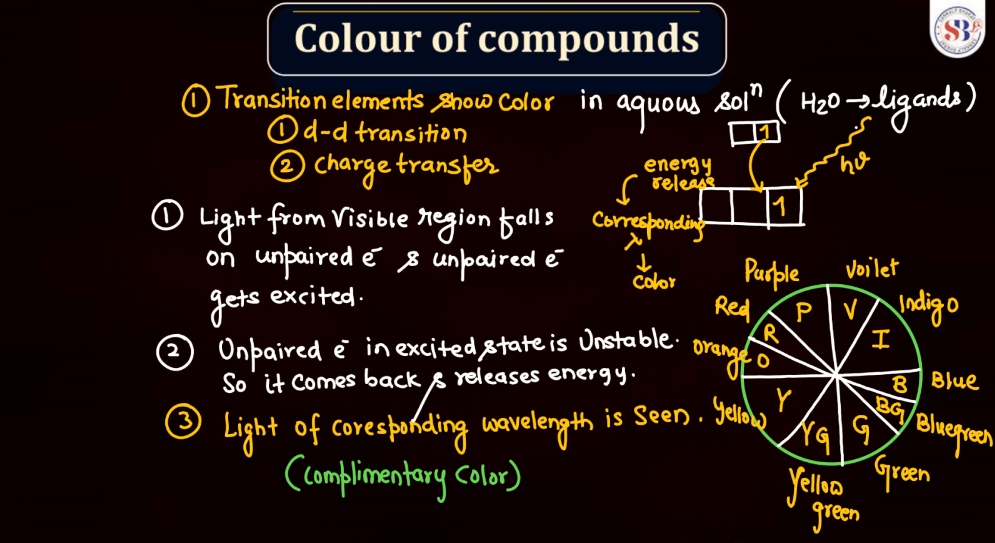 Colour of compounds
SB
① Transition elements show color in aquous solⁿ ( H2O → ligands)
① d-d transition
② charge transfer
1
hν
energy
release
1
Corresponding
λ
color
① Light from Visible region falls
on unpaired e⁻ & unpaired e⁻
gets excited.
② Unpaired e⁻ in excited state is Unstable.
So it comes back & releases energy.
③ Light of coresponding wavelength is seen.
(complimentary color)
Purple
Voilet
Indigo
Red
orange
Blue
Yellow
Bluegreen
Green
Yellow
green
P
V
I
R
O
B
BG
Y
YG
G